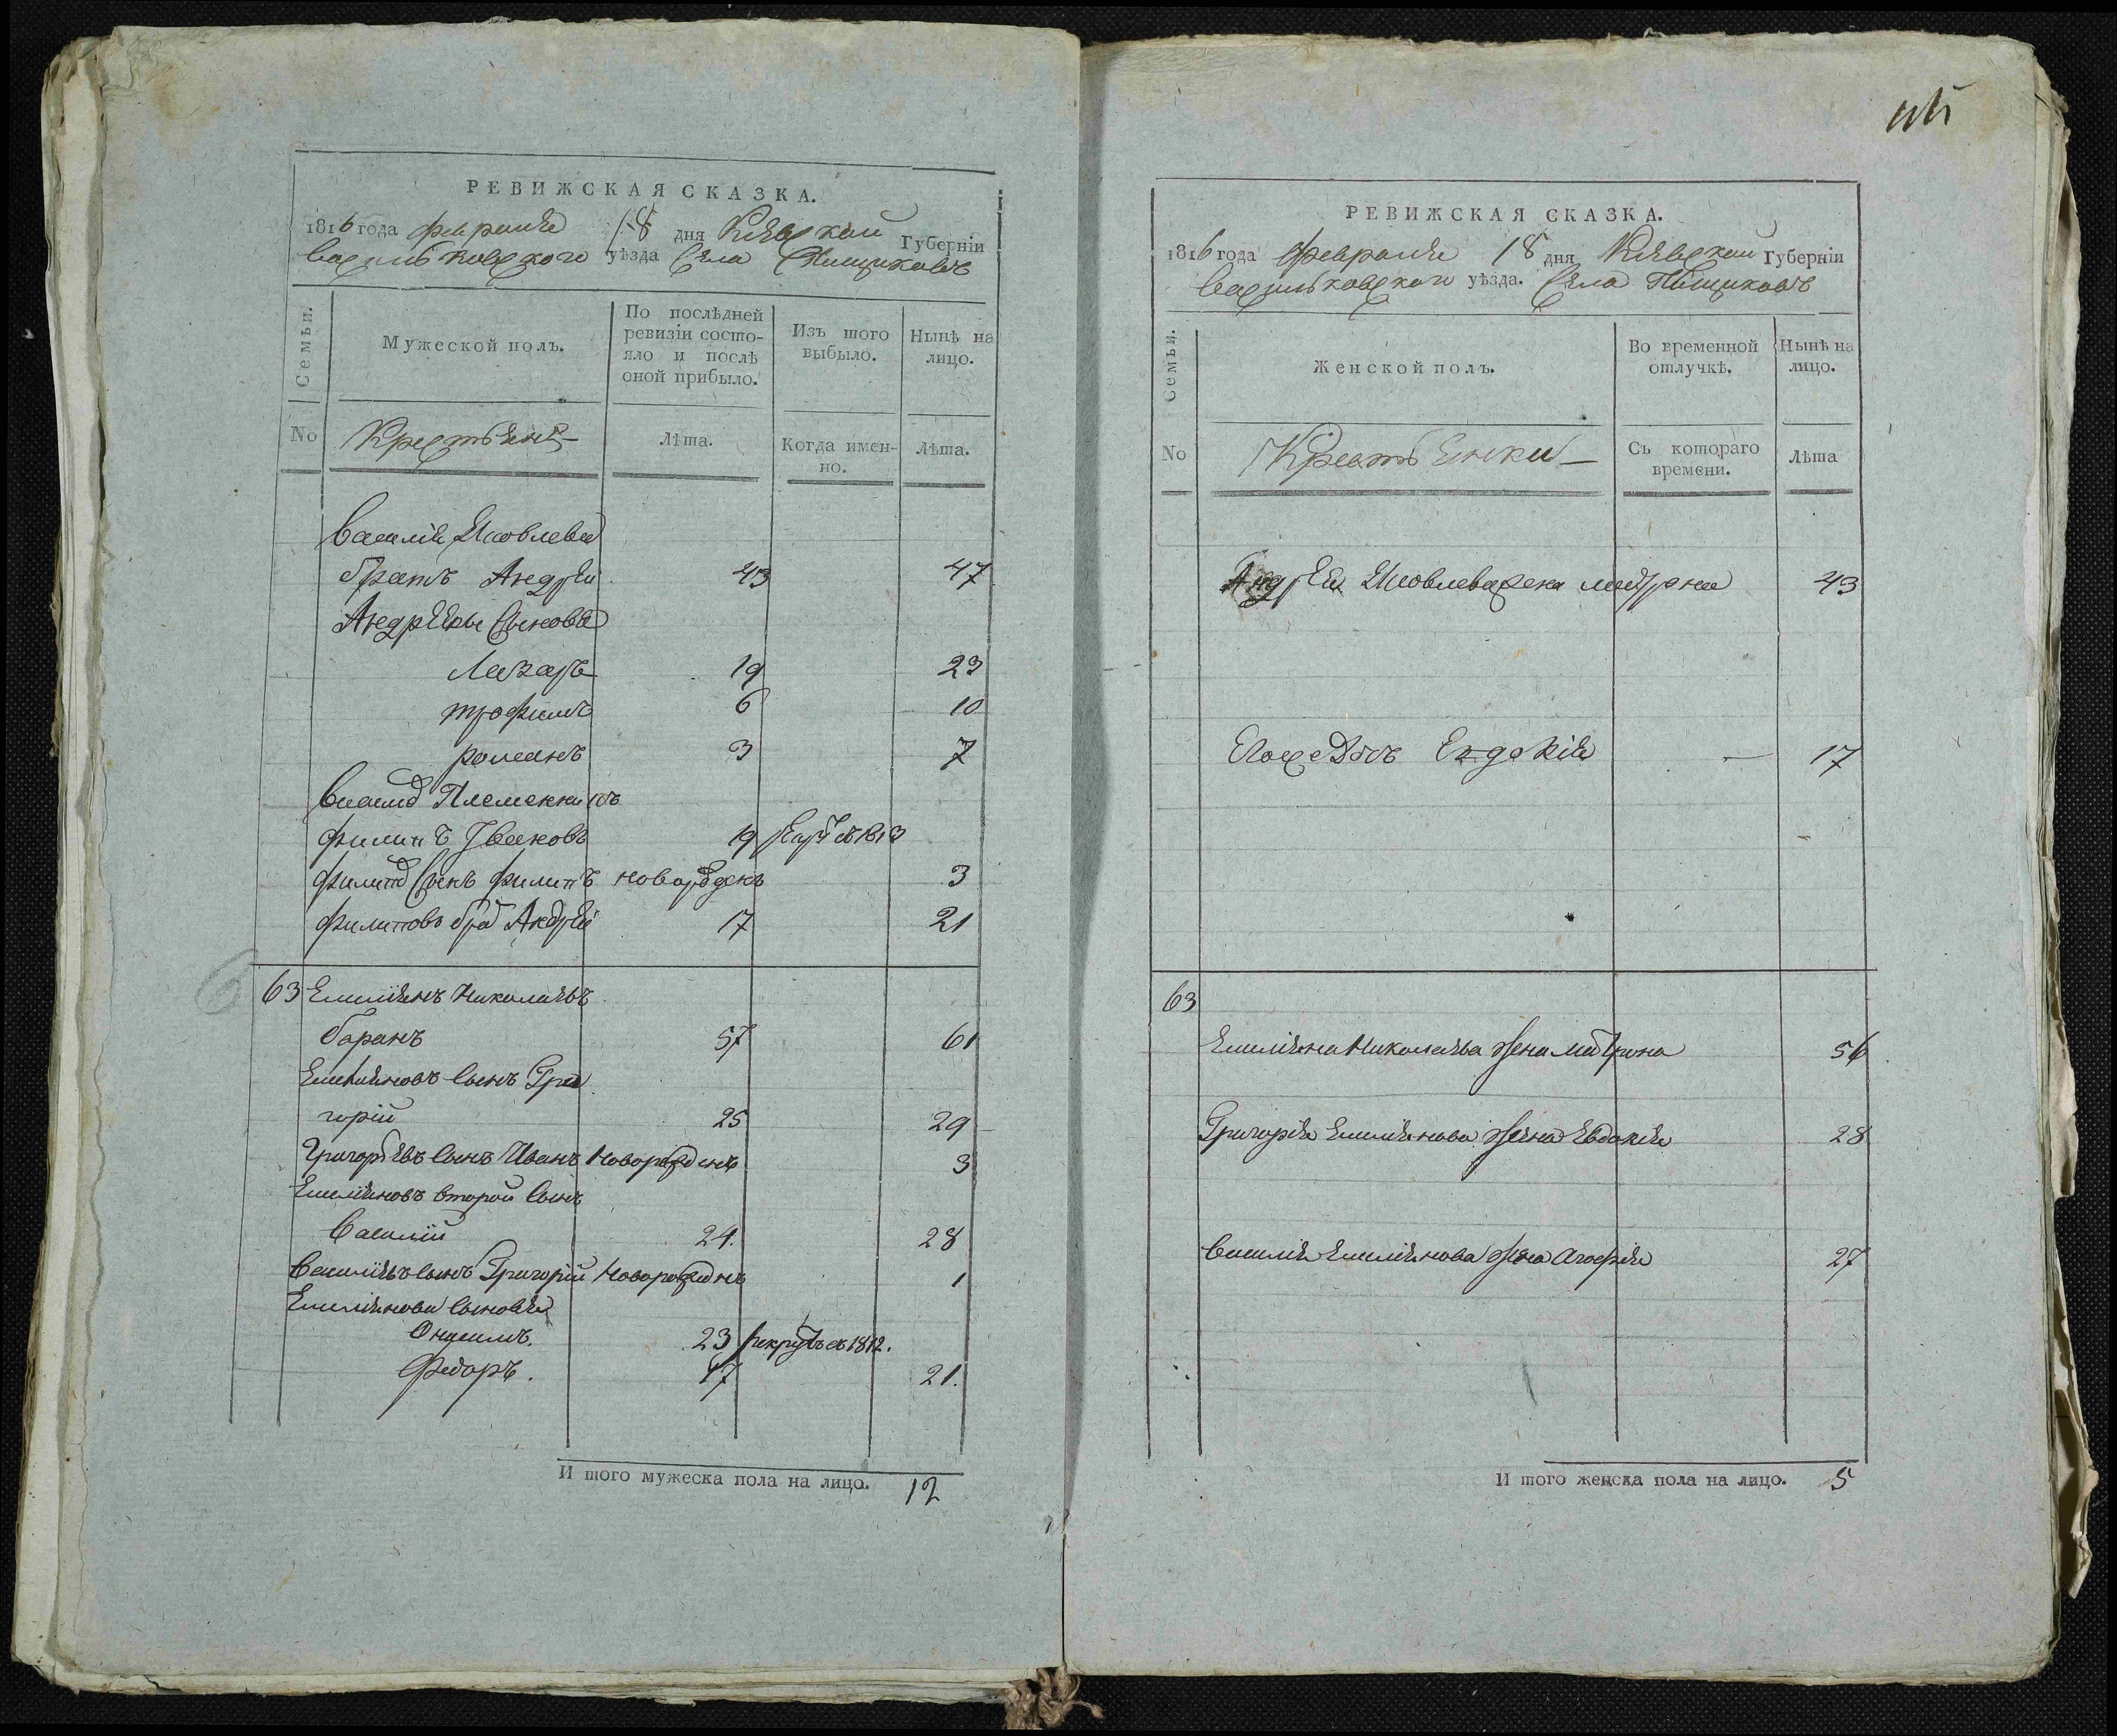 РЕВИЖСКАЯ СКАЗКА.
1816 года февраля 18 дня Кіевской Губерніи
васильковского уѣзда Села Пищиковъ
Семьи.
Мужеской полъ.
По послѣдней ревизіи состо-
яло и послѣ оной прибыло.
Изъ того выбыло.
Нынѣ на лицо.
No
Крестьяне
Лѣта.
Когда имен-
но.
Лѣта.
василія Яковлева
братъ Андрей 43 47
Андрѣевы Сынова
Лазарь 19 23
трофимъ 6 10
романъ 3 7
василія Племянникъ
филипъ Ивановъ 19 1813
филипа Сынъ филипъ новорожденъ 3
филиповъ братъ Андрей 17 21
63 Емилиянъ Николаевъ
баранъ 57 61
Емилияновъ сынъ Гри
горій 25 29
Григорьевъ сынъ Иванъ Новорожденъ 3
Емилияновъ второй сынъ
Василій 24. 28
Василіевъ сынъ Григорій Новорожденъ 1
Емилиянова сыновья
Онисимъ. 23 рекрутъ въ 1812.
Федоръ. 17 21.
И того мужеска пола на лицо. 12
РЕВИЖСКАЯ СКАЗКА.
1816 года февраля 18 дня Кіевской Губерніи
васильковского уѣзда. Села Пищиковъ
Семьи.
Женской полъ.
Во временной отлучкѣ.
Нынѣ на лицо.
No
Крестьянки
Съ котораго времени.
Лѣта
Андрея Яковлева жена матрона 43
Евдокія — 17
63
Емилияна Николаева жена Матрона 56
Григорія Емилиянова жена Евдокія 28
Василія Емилиянова жена Агафія 27
И того женска пола на лицо. 5